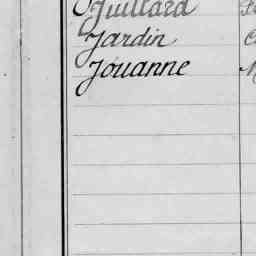 Juillard
Jardin
Jouanne